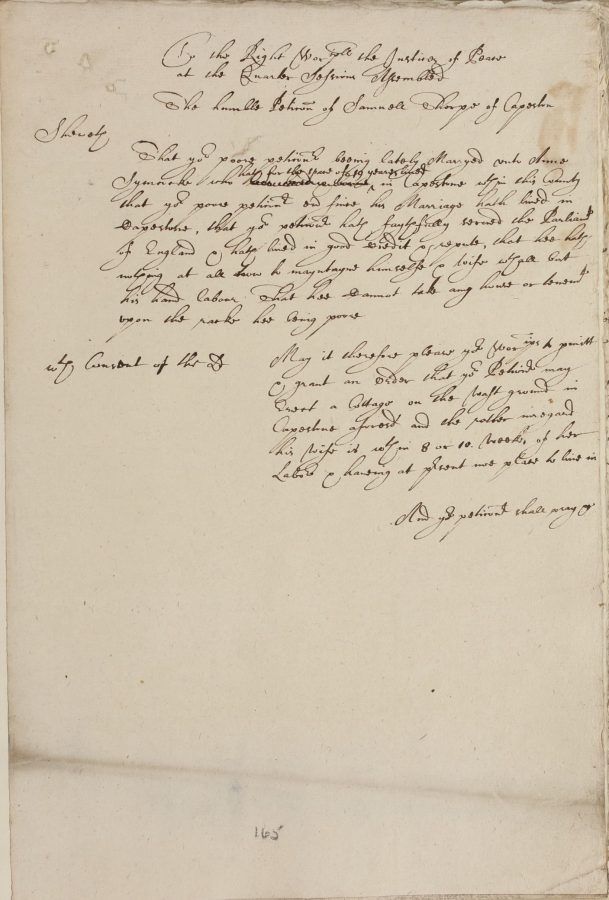 To the Right Wor:pll the Justices of Peace
at the Quarter Sessions Assembled
The humble Petition of Samuell Thorpe of Capeston
Sheweth
That yor poore petionr beeing lately Marryed unto Anne
Symcocke who hath for the space of 19 yeares lived in Capestone wthin this County
that yor poore petionr ever since his Marriage hath lived in
Capestone, that yor petionr hath faythfully served the Parliamt
of England & hath lived in good Creditt & repute, that hee hath
nothing at all how to mayntayne himselfe & wife wthall but
his hand labour That hee Cannot take any house or tenemt
upon the racke hee being poore
wth Consent of the Ld
May it therefore please yor Worpps to permitt
& grant an Order that yor Petionr may
Erect a Cottage on the Wast ground in
Capestone aforesd and the rather in regard
his wife is wthin 8 or 10 Weekes of her
Labor & haveing at present noe place to live in
And yor petionr shall pray &
165